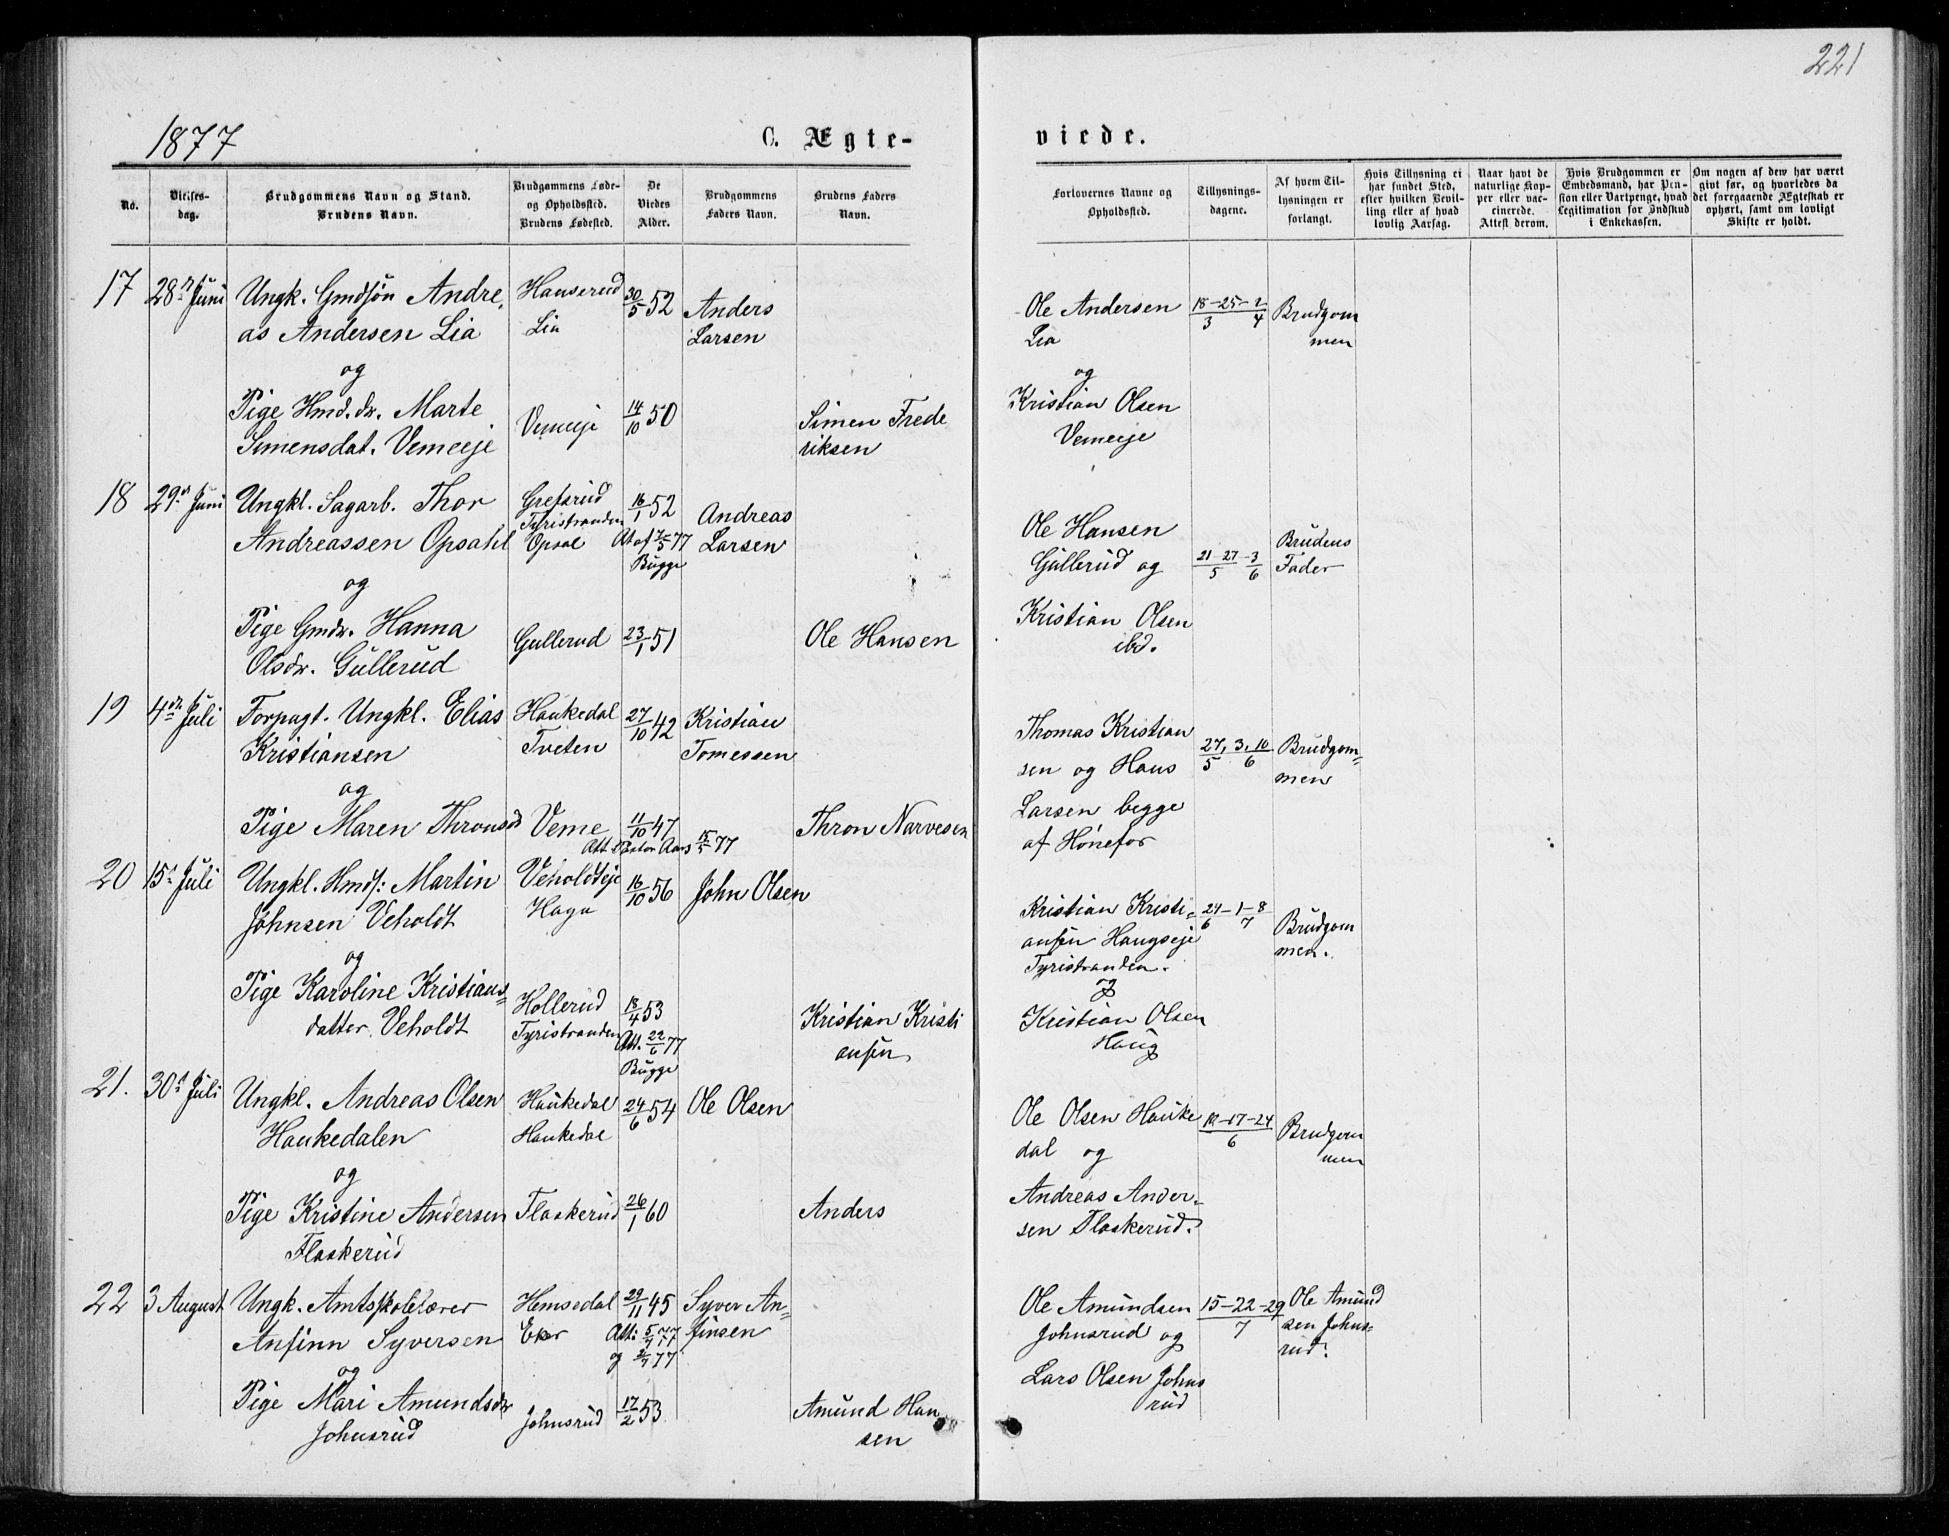 221
1877
C. Ægte-
viede.
No.
Vielses-
dag.
Brudgommens Navn og Stand.
Brudens Navn.
Brudgommens Føde-
og Opholdssted.
Brudens Fødested.
De
Viedes
Alder.
Brudgommens
Faders Navn.
Brudens Faders
Navn.
Forlovernes Navne og
Opholdssted.
Tillysnings-
dagene.
Af hvem Til-
lysningen er
forlangt.
Hvis Tillysning ei
har fundet Sted,
efter hvilken Bevil-
ling eller af hvad
lovlig Aarsag.
Naar havt de
naturlige Kop-
per eller vac-
cinerede.
Attest derom.
Hvis Brudgommen er
Embedsmand, har Pen-
sion eller Vartpenge, hvad
Legitimation for Indskud
i Enkekassen.
Om nogen af dem har været
gift før, og hvorledes da
det foregaaende Ægteskab er
ophørt, samt om lovligt
Skifte er holdt.
17 28de Juni Ungk. Gmdsøn Andre- Hanserud 30/5 52 Anders
as Andersen Lia Lia Larsen
og
Pige Hmd.dr. Marte Vemeeje 14/10 50 Simen Frede
Simensdat. Vemeeje riksen
Ole Andersen 18-25/3-2/4 Brudgom
Lia men
og
Kristian Olsen
Vemeeje
18 29de Juni Ungkl. Sagarb. Thor Grefsrud 16/1 52 Andreas
Andreassen Opsahl Tyristranden Larsen
Opsal At af 77
Bugge
og
Pige Gmdr. Hanna Gullerud 23/1 51 Ole Hansen
Olsdr. Gullerud
Ole Hansen Brudens
Gullerud og 21-27/5-3/6 Fader
Kristian Olsen
ibd.
19 4de Juli Forpagt. Ungkl. Elias Haukedal 27/10 42 Kristian
Kristiansen Tveten Tomessen
og
Pige Maren Thronsd Veme 11/10 47 Thron Narvesen
Att. Pastor Aars 15/5 77
Thomas Kristian
sen og Hans 27/5, 3, 10/6 Brudgom-
men
Larsen begge
af Hønefos
20 15de Juli Ungkl. Hmds: Martin Veholdteje 16/10 56 John Olsen
Johnsen Veholdt Haga
og
Pige Karoline Kristians- Hollerud 18/4 53
datter Veholdt Tyristranden Att. 22/6 77 Kristian Kristi
Bugge ansen
Kristian Kristi- 24/6-1-8/7 Brudgom
ansen Haugseje men.
Tyristranden.
og
Kristian Olsen
Haug
21. 30te Juli Ungkl. Andreas Olsen Haukedal 24/6 54 Ole Olsen
Haukedalen Haukedal
og
Pige Kristine Andersen Flaskerud 26/1 60 Anders
Flaskerud
Ole Olsen Hauke 10-17-24/6 Brudgom
dal og men
Andreas Ander-
sen Flaskerud.
22 3 August Ungk. Amtsskolelærer Hemsedal 29/11 45 Syver An-
Anfinn Syversen Eker Att: 5/7 77 finsen
og 2/7 77
og
Pige Mari Amundsdr Johnsrud 17/2 53 Amund Han
Johnsrud sen
Ole Amundsen 15-22-29/7 Ole Amund
Johnsrud og sen Johns-
rud.
Lars Olsen Johns
rud